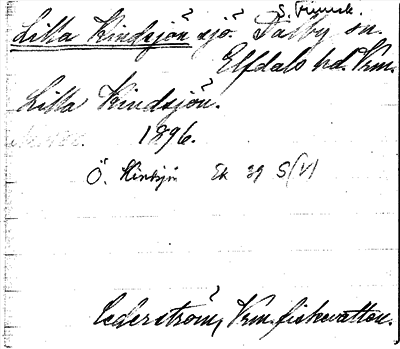 S. Finnsk.
Lilla Kindsjön sjö. Dalby sn.
Elfdals hd. Vrm.
Lilla Kindsjön.
1896.
Ö. Kinsjön Ek 39 S(V)
Cederström, Vrm. fiskevatten.